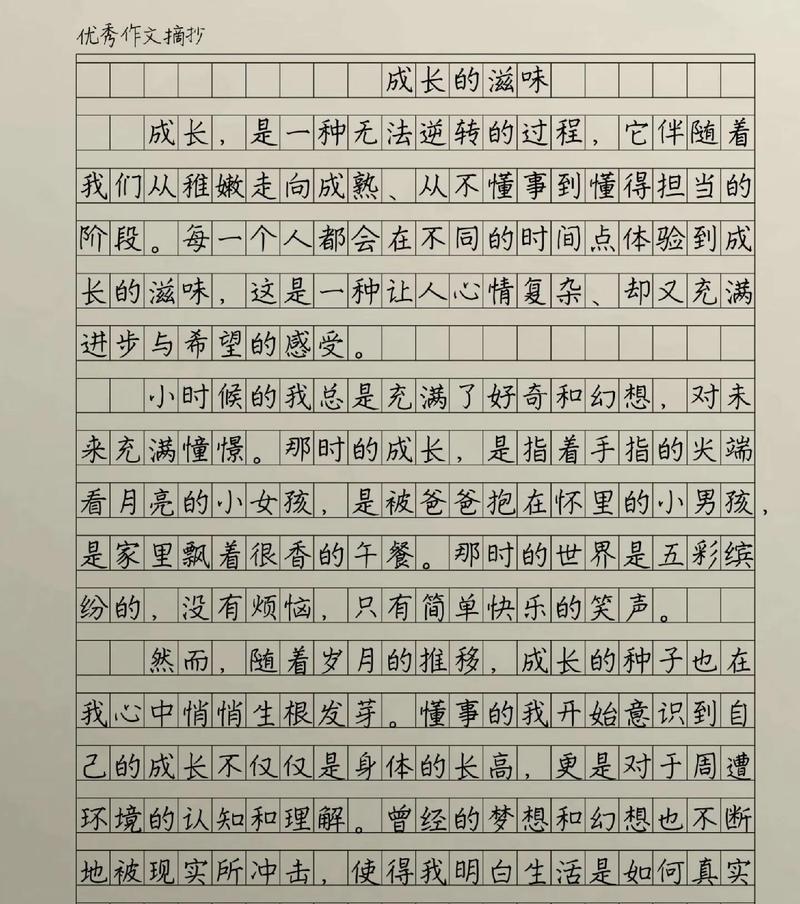 优秀作文摘抄
成长的滋味
成长，是一种无法逆转的过程，它伴随着
我们从稚嫩走向成熟、从不懂事到懂得担当的
阶段。每一个人都会在不同的时间点体验到成
长的滋味，这是一种让人心情复杂、却又充满
进步与希望的感受。
小时候的我总是充满了好奇和幻想，对未
来充满憧憬。那时的成长，是指着手指的尖端
看月亮的小女孩，是被爸爸抱在怀里的小男孩，
是家里飘着很香的午餐。那时的世界是五彩缤
纷的，没有烦恼，只有简单快乐的笑声。
然而，随着岁月的推移，成长的种子也在
我心中悄悄生根发芽。懂事的我开始意识到自
己的成长不仅仅是身体的长高，更是对于周遭
环境的认知和理解。曾经的梦想和幻想也不断
地被现实所冲击，使得我明白生活是如何真实